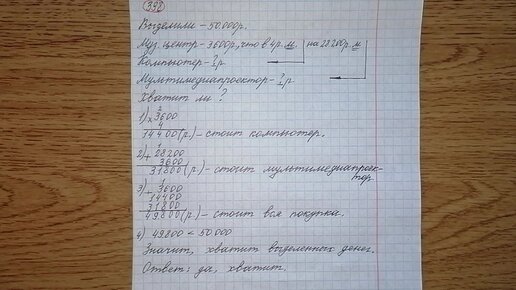 392
Выделили - 50000р.
Муз. центр - 3600р, что в 4 р. м. на 28200р м
Компьютер - ? р
Мультимедиапроектор - ? р
Хватит ли?
1) × 3600
4
14400 (р.) - стоит компьютер.
2) + 28200
3600
31800 (р) - стоит мультимедиапроек-
тор.
3) 3600
14400
31800
49800 (р) - стоит вся покупка.
4) 49800 < 50000
Значит, хватит выделенных денег.
Ответ: да, хватит.